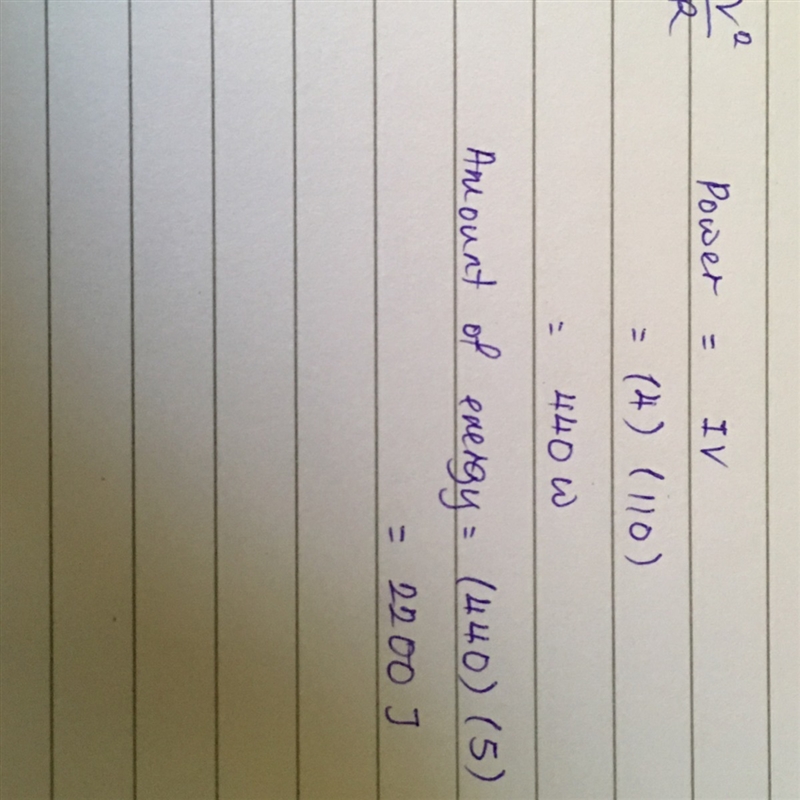 V²
R
Power = IV
= (4) (110)
= 440 W
Amount of energy = (440) (5)
= 2200 J